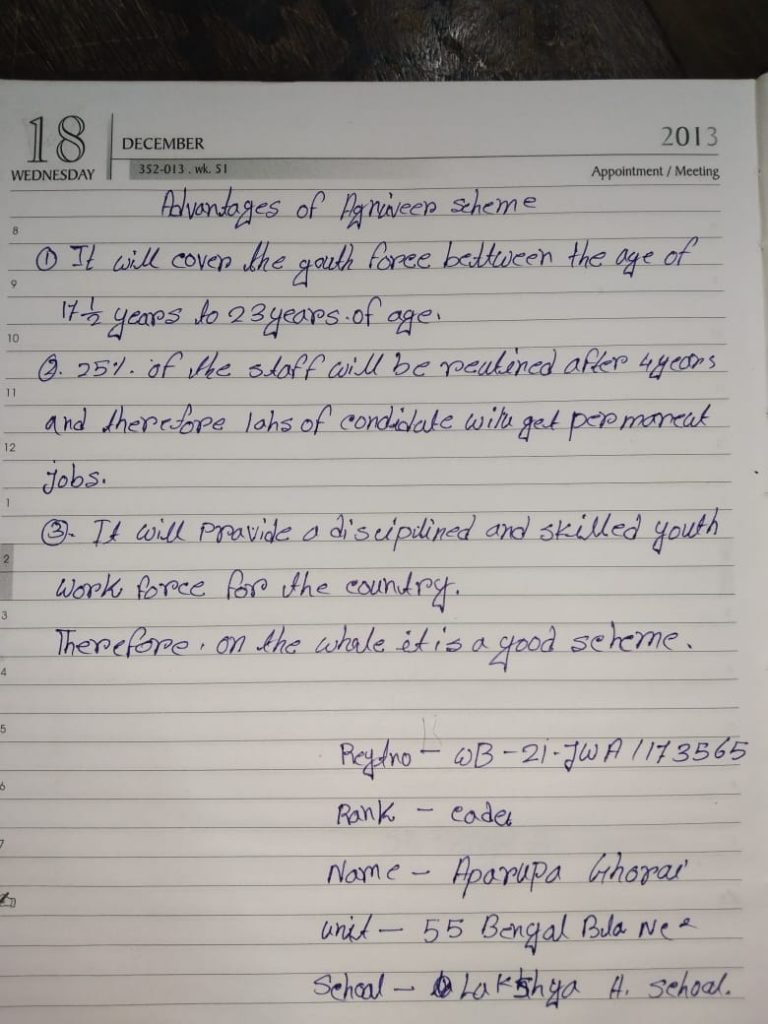 18
WEDNESDAY
DECEMBER
352-013 . wk. 51
2013
Appointment / Meeting
Advantages of Agniveer scheme
8
① It will cover the youth force bettween the age of
9
17 1/2 years to 23 years. of age.
10
②. 25%. of the staff will be reutined after 4 years
11
and therefore lahs of condidate will get permanent
12
jobs.
1
③. It will Pravide a discipilined and skilled youth
2
work force for the country.
3
Therefore, on the whole it is a good scheme.
4
5
Regdno - WB-21-JWA1173565
6
Rank - cadet
7
Name - Aparupa Ghorai
unit - 55 Bengal Bla Ncc
School - Lakshya H. School.